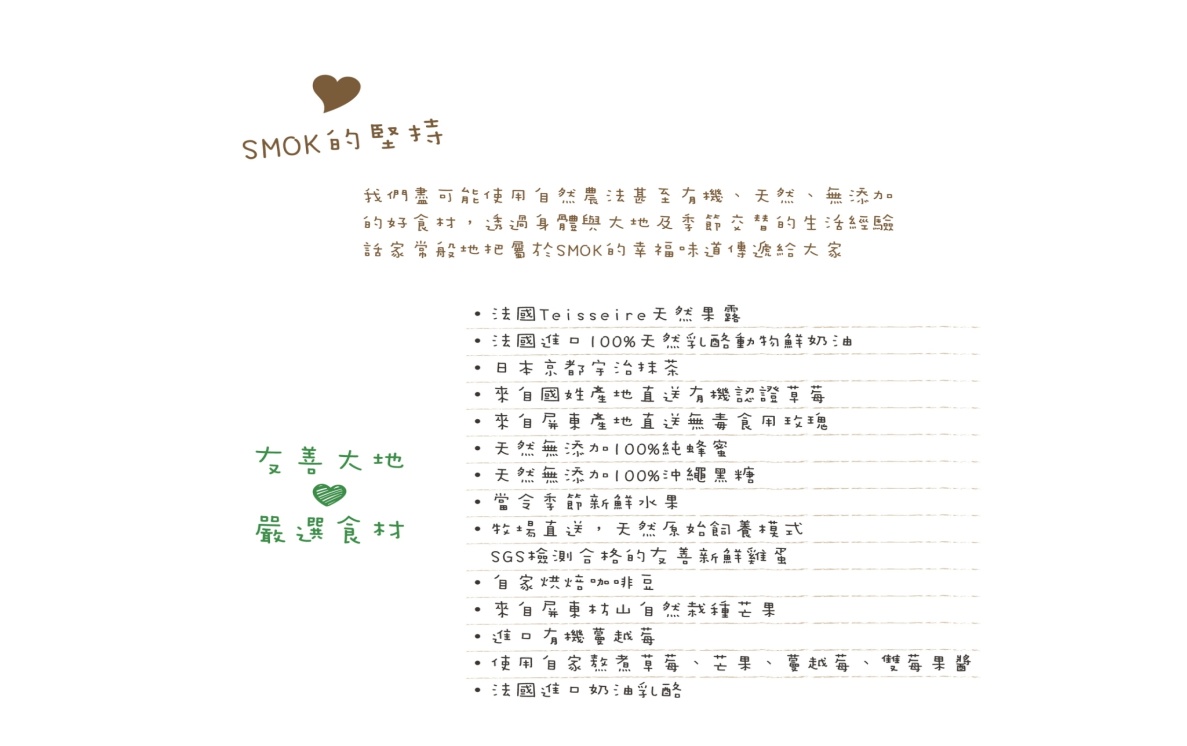 SMOK的堅持
我們盡可能使用自然農法甚至有機、天然、無添加
的好食材，透過身體與大地及季節交替的生活經驗
話家常般地把屬於SMOK的幸福味道傳遞給大家
• 法國Teisseire天然果露
• 法國進口100%天然乳酪動物鮮奶油
• 日本京都宇治抹茶
• 來自國姓產地直送有機認證草莓
• 來自屏東產地直送無毒食用玫瑰
• 天然無添加100%純蜂蜜
• 天然無添加100%沖繩黑糖
• 當令季節新鮮水果
• 牧場直送，天然原始飼養模式
SGS檢測合格的友善新鮮雞蛋
• 自家烘焙咖啡豆
• 來自屏東枋山自然栽種芒果
• 進口有機蔓越莓
• 使用自家熬煮草莓、芒果、蔓越莓、雙莓果醬
• 法國進口奶油乳酪
友善大地
嚴選食材